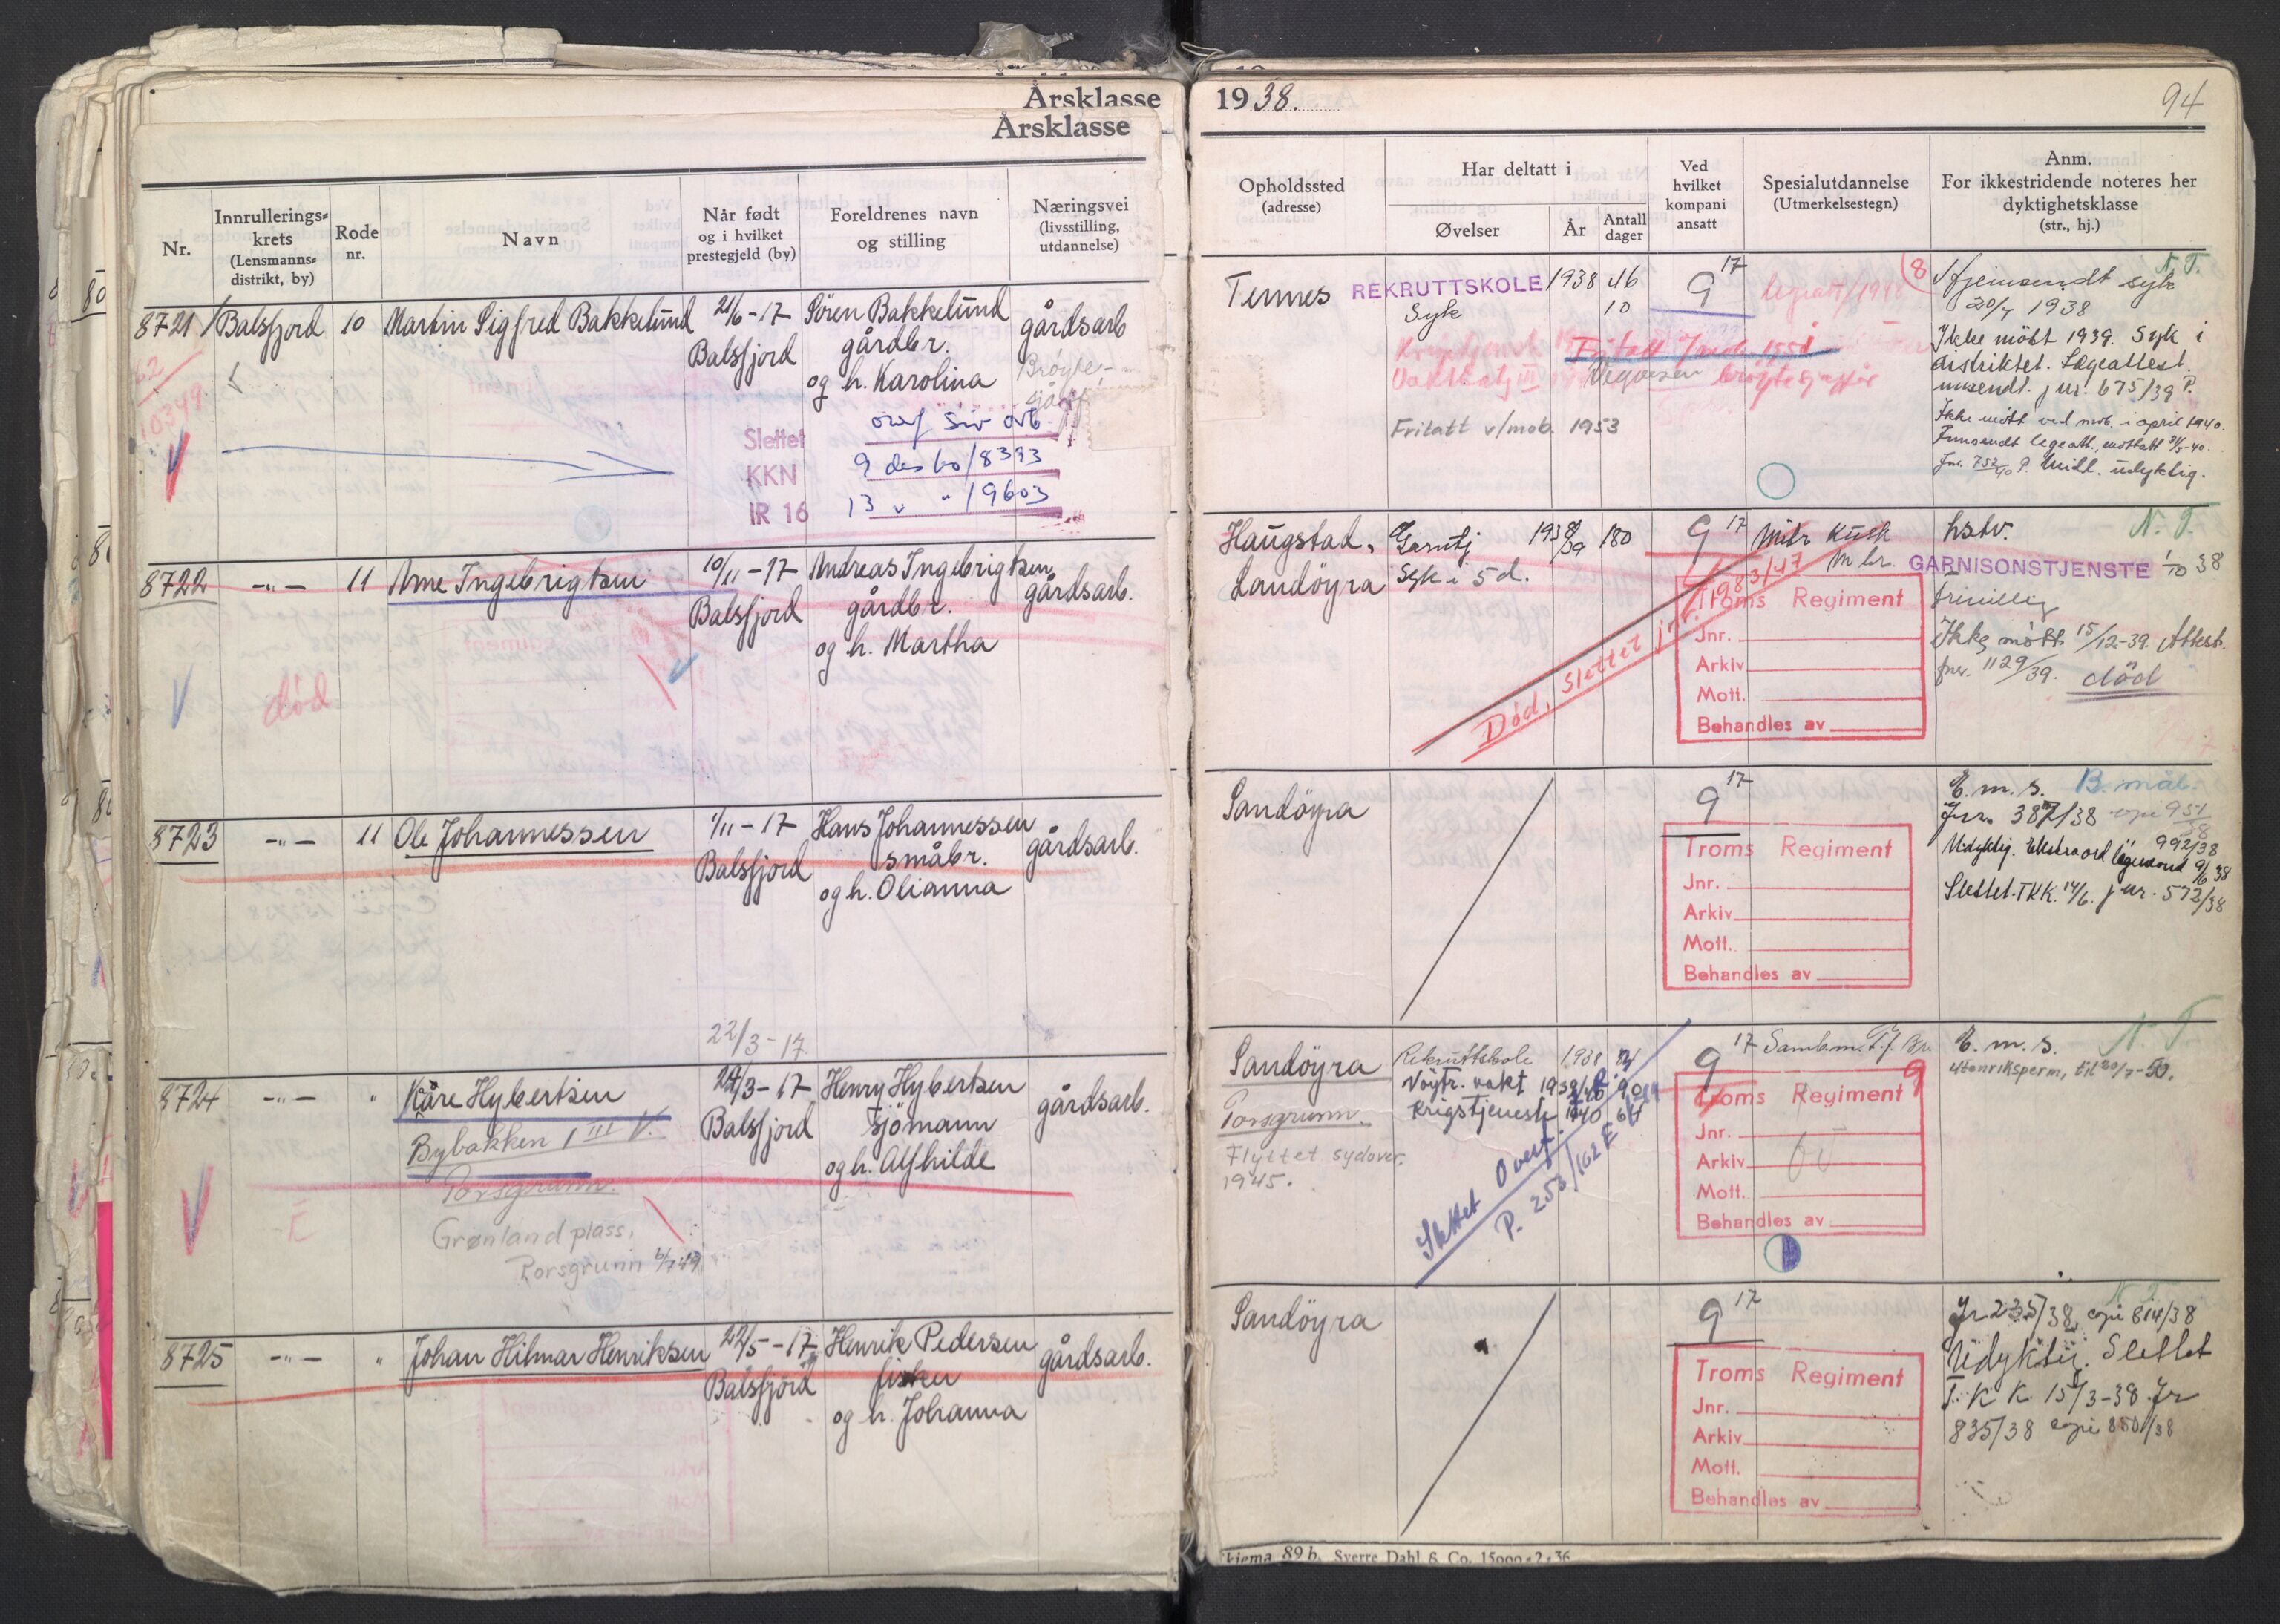 Årsklasse
Årsklasse
Nr.
Innrullerings-
krets
(Lensmanns-
distrikt, by)
Rode
nr.
Navn
Når født
og i hvilket
prestegjeld (by)
Foreldrenes navn
og stilling
Næringsvei
(livsstilling,
utdannelse)
8721 Balsfjord 10 Martin Sigfred Bakkelund 21/6-17 Sören Bakkelund gårdsarb
Balsfjord gårdbr.
og h. Karolina
10349
ovf Siv orb.
Slettet
KKN
IR 16
9 des 60/8393
13 " " /9603
8722 -"- 11 Arne Ingebrigtsen 10/11-17 Andreas Ingebrigtsen gårdsarb.
Balsfjord gårdbr.
og h. Martha
død
8723 -"- 11 Ole Johannessen 1/11-17 Hans Johannessen gårdsarb.
Balsfjord småbr.
og h. Olianna
22/3-17
8724 -"- " Kåre Hybertsen 24/3-17 Henry Hybertsen gårdsarb.
Balsfjord Sjömann
og h. Alfhilde
Bybakken 1 III V.
Porsgrunn.
E
Grønland plass,
Porsgrunn
8725 -"- " Johan Hilmar Henriksen 22/5-17 Henrik Pedersen gårdsarb.
Balsfjord fisker
og h. Johanna
1938.
94
Opholdssted
(adresse)
Har deltatt i
Øvelser
År
Antall
dager
Ved
hvilket
kompani
ansatt
Spesialutdannelse
(Utmerkelsestegn)
Anm.
For ikkestridende noteres her
dyktighetsklasse
(str., hj.)
Temmes REKRUTTSKOLE 1938 46 9 17
Syk 10
8 N.T.
Hjemsendt syk
20/7 1938
Ikke möbt 1939. Syk i
distriktet. Lægeattest.
innsendt. jnr. 675/39 P.
Fritatt v/mob. 1953
Ikke mött ved mob. i april 1940.
Innsendt legeatt., mottatt
P. Milt. udyktig.
Haugstad, Garntj 1938/39 180 9 17 Mitr Kusk hstv. N.T.
Landöyra Syk i 5 d. GARNISONSTJENSTE 1/10 38
frivillig
Ikke mött 15/12-39. Attest.
jnr. 1129/39. död
Død, slettet jnr. 1983/47
Troms Regiment
Jnr.
Arkiv
Mott.
Behandles av
Sandöyra 9 17 E. m. s. B. mål.
Jnr. 387/38 copi 951/38
992/38
Udyktig. Ekstraord lægenevnd 9/6 38
Slettet. TKK. 14/6. jnr. 572/38
Troms Regiment
Jnr.
Arkiv
Mott.
Behandles av
Sandöyra Rekruttskole 1938 9 17 Samb.m. E. m. s. N.T.
Nøytr. vakt
Krigstjeneste 1940 64
Utenriksperm, til 20/7-50.
Porsgrunn.
Flyttet sydover.
1945.
Slettet Overf.
P. 253/162 E
9
Troms Regiment
Jnr.
Arkiv
Mott.
Behandles av
Sandöyra 9 17 N.T.
Jr. 235/38, copi 814/38
Udyktig. Slettet
T. K K 15/3-38 Jr
835/38 copi 850/38
Troms Regiment
Jnr.
Arkiv
Mott.
Behandles av
kjema 89 b. Sverre Dahl & Co. 15000-2-36